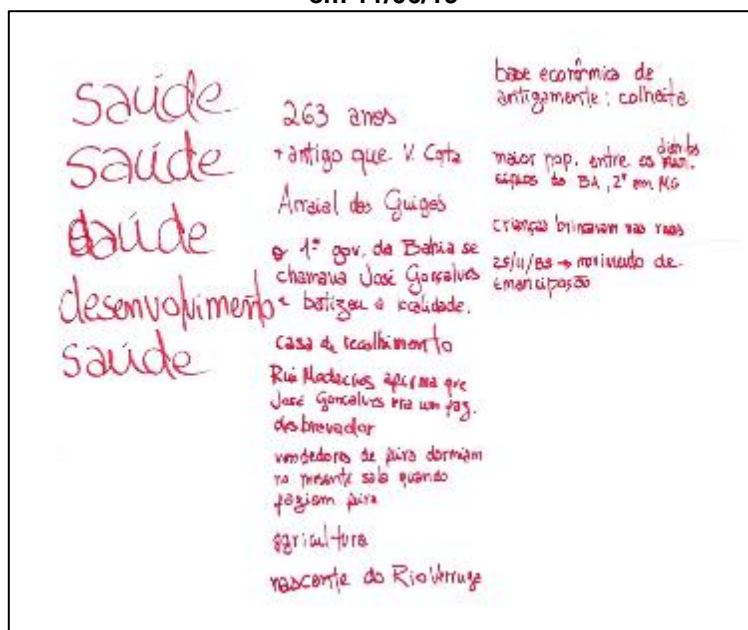 saúde
saúde
saúde
desenvolvimento
saúde
263 anos
+ antigo que V. Cqta
Arraial dos Guigós
o 1º gov. da Bahia se
chamava José Gonçalves
e batizou a localidade.
casa de recolhimento
Rui Medeiros afirma que
José Gonçalves era um faz.
desbravador
vendedores de feira dormiam
na presente sala quando
faziam feira
agricultura
nascente do Rio Verruga
base econômica de
antigamente: colheita
maior pop. entre os distritos
da BA, 2º em MG
crianças brincavam nas ruas
25/11/89 → movimento de
emancipação